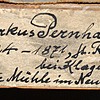 rkus Pernha
4 – 1871, f. K
bei Klag
. Mühle im Neu